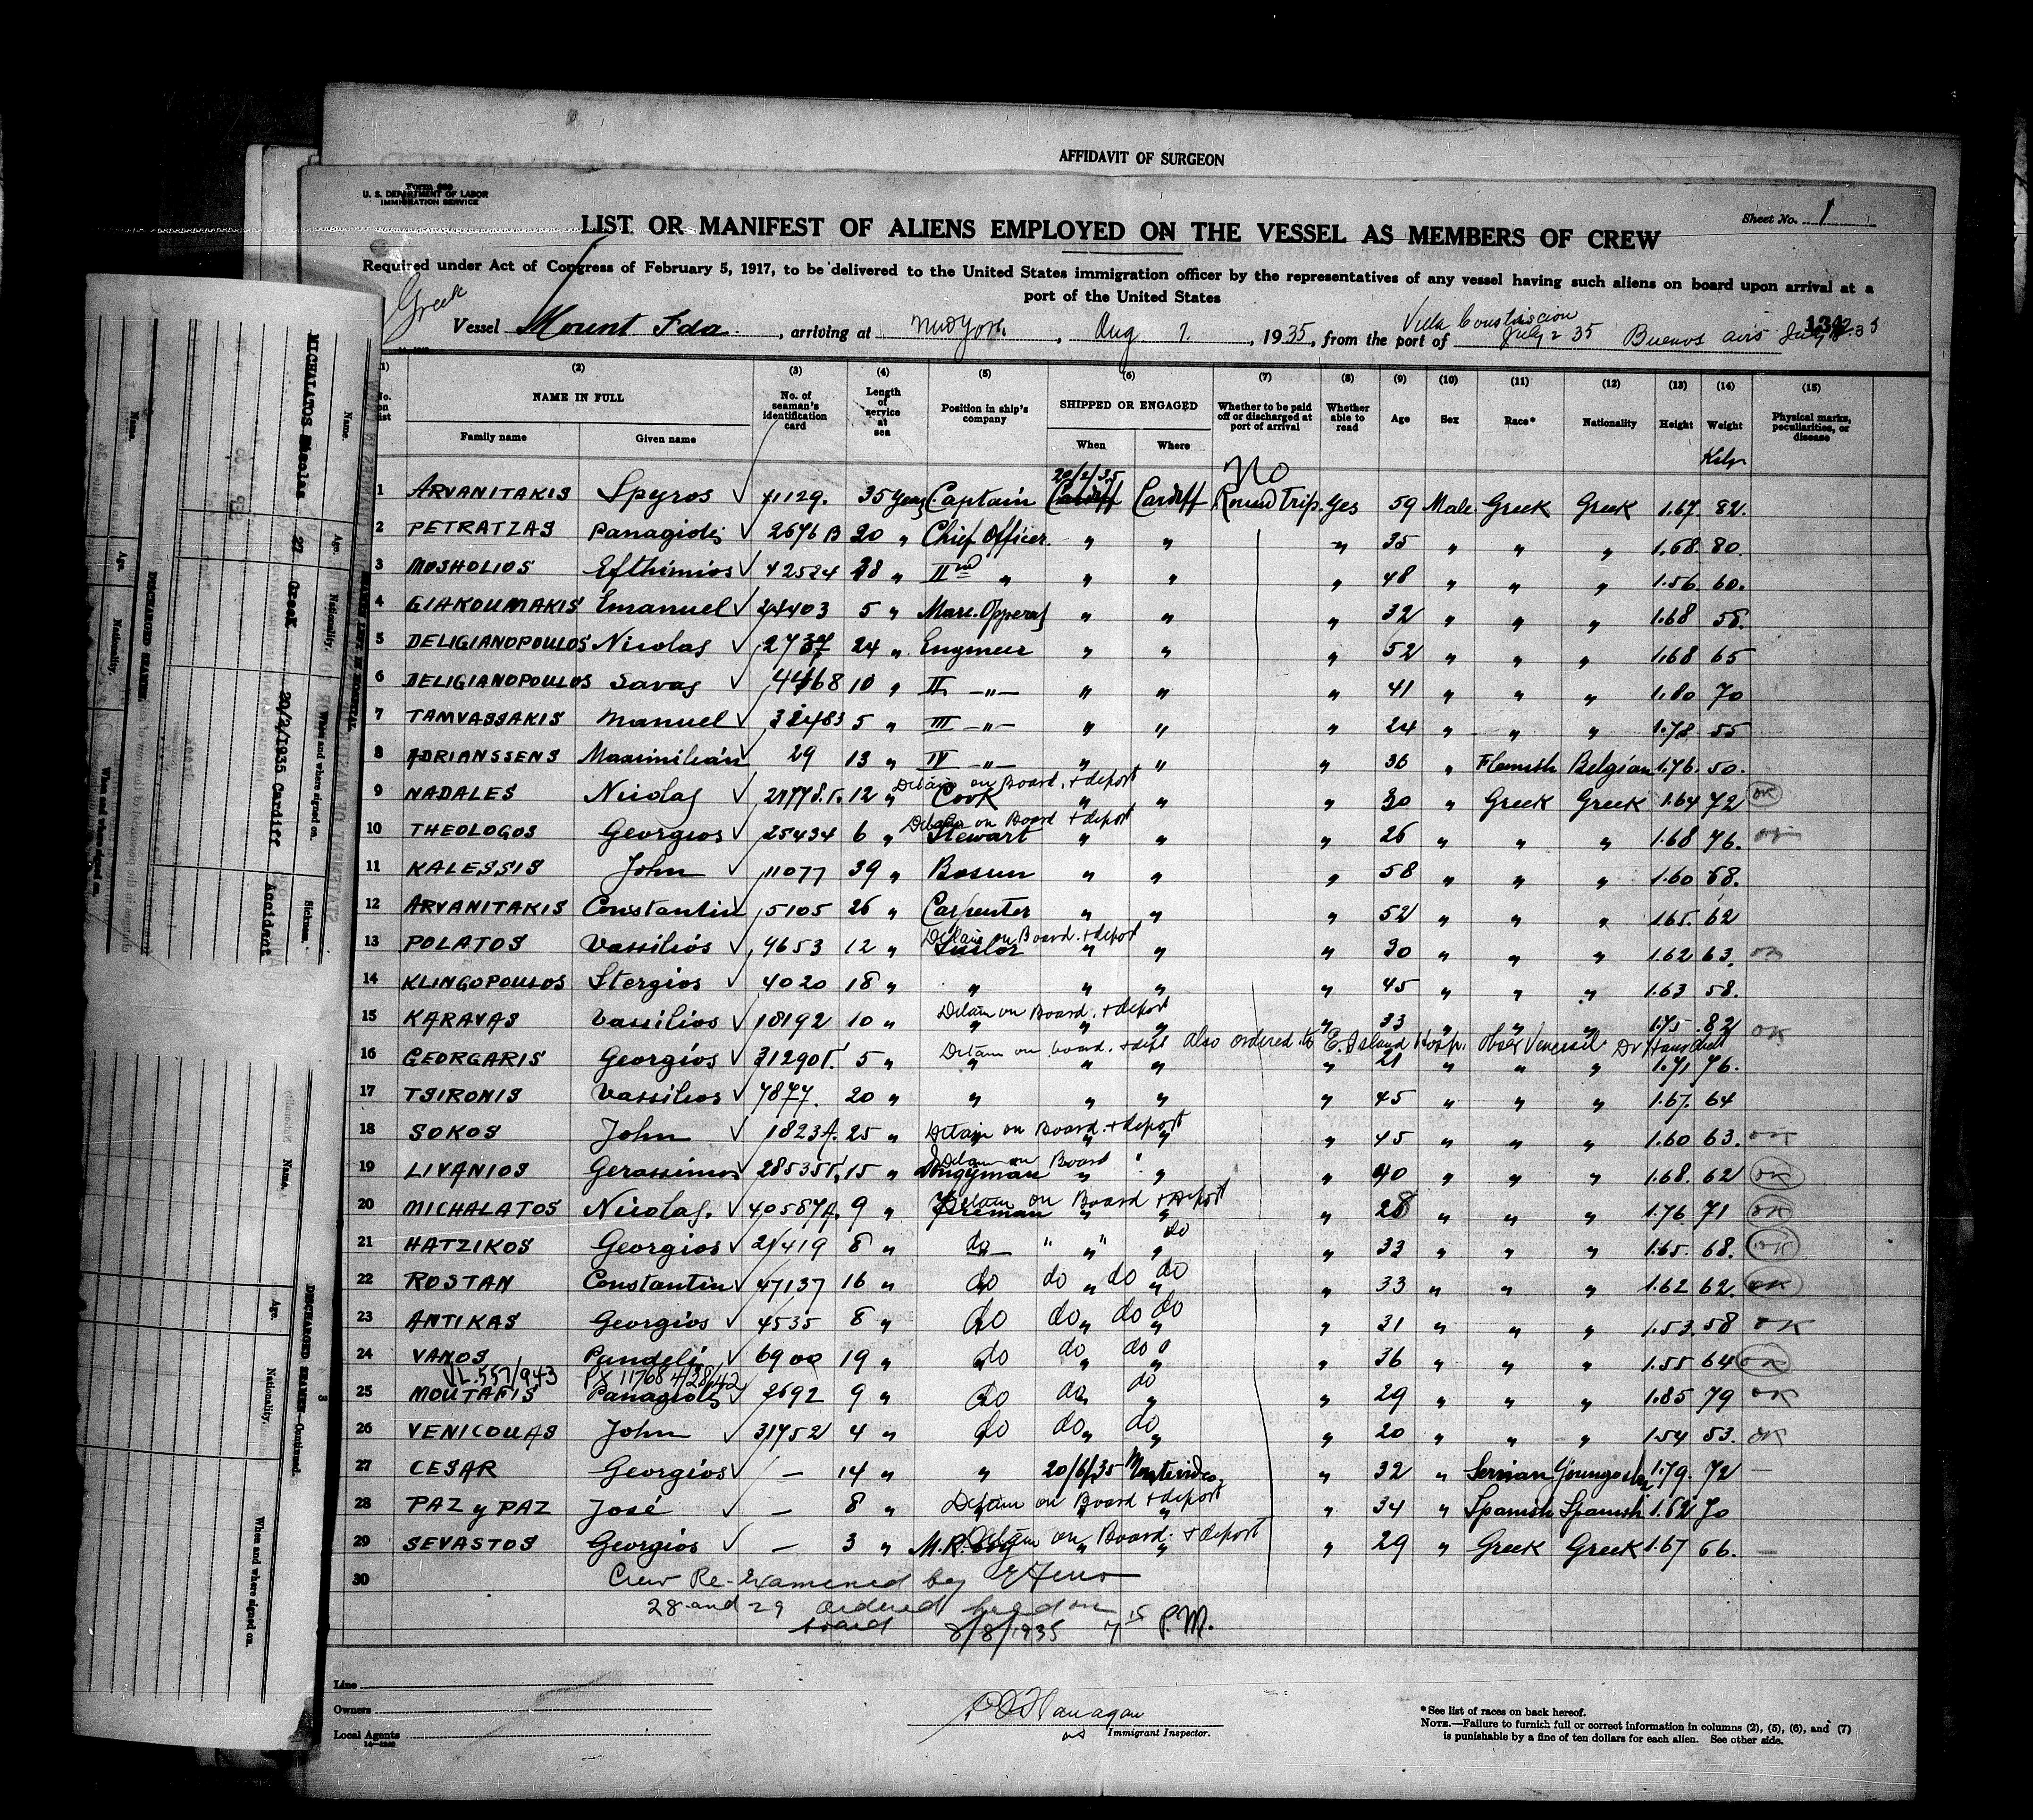 AFFIDAVIT OF SURGEON
U. S. DEPARTMENT OF LABOR
IMMIGRATION SERVICE
Sheet No. 1
LIST OR MANIFEST OF ALIENS EMPLOYED ON THE VESSEL AS MEMBERS OF CREW
Required under Act of Congress of February 5, 1917, to be delivered to the United States immigration officer by the representatives of any vessel having such aliens on board upon arrival at a
port of the United States
Greek
Vessel Mount Ida, arriving at New York, Aug 7, 1935, from the port of Villa July 2 35 Buenos airs July
(2) (3) (4) (5) (6) (7) (8) (9) (10) (11) (12) (13) (14) (15)
NAME IN FULL
Family name Given name
No. of seaman's identification card
Length of service at sea
Position in ship's company
SHIPPED OR ENGAGED
When Where
Whether to be paid off or discharged at port of arrival
Whether able to read
Age Sex Race* Nationality Height Weight
Physical marks, peculiarities, or disease
1 ARVANITAKIS Spyros 41129. 35 Years Captain 20/2/35 Cardiff Cardiff No Round Trip. Yes 59 Male Greek Greek 1.67. 82.
2 PETRATZAS Panagiotis 2676 B 20 " Chief Officer. " " " 35 " " " 1.68. 80.
3 MOSHOLIOS Efthimios 42524 " IInd " " " " 48 " " " 1.56. 60.
4 GIAKOUMAKIS Emanuel 24403 5 " " " " 32 " " " 1.68 58.
5 DELIGIANOPOULOS Nicolas 2737 24 " Engineer " " " 52 " " " 1.68 65
6 DELIGIANOPOULOS Savas 10 " II —"— " " " 41 " " " 1.80 70
7 TAMVASSAKIS Manuel 5 " III —"— " " " 24 " " " 1.78. 55
8 ADRIANSSENS Maximilian 29 13 " IV —"— " " " 36 " Flemish Belgian 1.76. 50.
9 NADALES Nicolas 12 " Detain on Board. + deport Cook " " " 30 " Greek Greek 1.64 72 OK
10 THEOLOGOS Georgios 25434 6 " Detain on Board + deport Stewart " " " 26 " " " 1.68 76.
11 KALESSIS John 11077 39 " Bosun " " " 58 " " " 1.60 68.
12 ARVANITAKIS Constantin 5105 26 " Carpenter " " " 52 " " " 1.65. 62
13 POLATOS Vassilios 4653 12 " Detain on Board. + deport Sailor " " " 30 " " " 1.62 63.
14 KLINGOPOULOS Stergios 4020 18 " " " " " 45 " " " 1.63 58.
15 KARAVAS Vassilios 18192 10 " Detain on Board. + deport " " " " 33 " " " 1.75. 82 OK
16 GEORGARIS Georgios 5 " Detain on board. also ordered to E. Island Hosp. " " " " 21 " " " 1.71 76.
17 TSIRONIS Vassilios 7877. 20 " " " " " 45 " " " 1.67. 64
18 SOKOS John 1823A. 25 " Detain on Board. + deport " " " 45 " " " 1.60 63. OK
19 LIVANIOS Gerassimos 15 " Detain on Board " " " 40 " " " 1.68. 62 OK
20 MICHALATOS Nicolas. 40587A. 9 " Detain on Board + deport Fireman " " " 28 " " " 1.76. 71 OK
21 HATZIKOS Georgios 21419 8 " do " " do " 33 " " " 1.65. 68. OK
22 ROSTAN Constantin 47137 16 " do do do do " 33 " " " 1.62 62. OK
23 ANTIKAS Georgios 4535 8 " do do do do " 31 " " " 1.53. 58 OK
24 VAMOS Pandeli 6900 19 " do do do " 36 " " " 1.55 64 OK
25 MOUTAFIS Panagiotis 2692 9 " do do do " 29 " " " 1.85 79 OK
26 VENICOUAS John 31752 4 " do do do " 20 " " " 1.54 53. OK
27 CESAR Georgios — 14 " " 20/6/35 Montevideo. " 32 " Servian 1.79. 72 —
28 PAZ y PAZ José — 8 " Detain on Board + deport " 34 " Spanish Spanish 1.62 70
29 SEVASTOS Georgios — 3 " Detain on Board. + deport " 29 " Greek Greek 1.67 66. —
30 Crew Re-examened by
28 and 29 ordered held on
board 8/8/1935 7 15 P.M.
Line
Owners
Local Agents
Immigrant Inspector.
*See list of races on back hereof.
NOTE.—Failure to furnish full or correct information in columns (2), (5), (6), and (7)
is punishable by a fine of ten dollars for each alien. See other side.
MICHALATOS Nicolas 27 Greek 20/2/1935 Cardiff Accident
Name. Age. Nationality. When and where signed on. Sickness.
DISCHARGED SEAMEN
Name. Age. Nationality. When and where signed on.
DISCHARGED SEAMEN—Continued.
Name. Age. Nationality. When and where signed on.